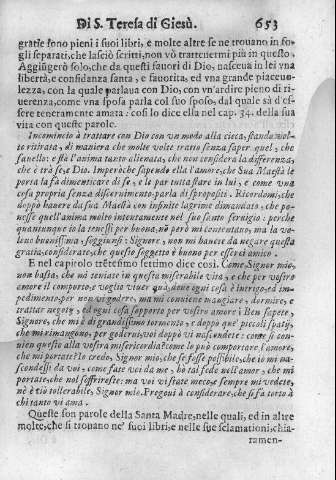 Di S. Teresa di Giesù. 653
gratie sono pieni i suoi libri, e molte altre se ne trouano in fo-
gli separati, che lasciò scritti, non vò trattenermi più in questo.
Aggiugerò solo, che da questi fauori di Dio, nasceua in lei vna
libertà, e confidenza santa, e fauorita, ed vna grande piaceuo-
lezza, con la quale parlaua con Dio, con vn'ardire pieno di ri-
uerenza, come vna sposa parla col suo sposo, dal quale sà d'es-
sere teneramente amata: così lo dice ella nel cap. 34. della sua
vita con queste parole.
Incomincio à trattare con Dio con vn modo alla cieca, stando mol-
to ritirata, di maniera che molte volte tratto senza saper quel, che
fauello: e stà l'anima tanto alienata, che non considera la differenza,
che è trà se, e Dio. Imperòche sapendo ella l'amore, che Sua Maestà le
porta la fà dimenticare di se, e le par tutta stare in lui, e come vna
cosa propria senza discernimento parla di spropositi. Ricordomi, che
doppò hauere da sua Maestà con infinite lagrime dimandato, che po-
nesse quell'anima molto intentamente nel suo santo seruigio: perche
quantunque io la tenessi per buona, nō però mi contentauo, ma la vo-
leuo buonissima, soggiunsi: Signore, non mi hauete da negare questa
gratia, considerate, che questo soggetto è buono per esserci amico.
E nel capitolo trētesimo settimo dice così. Come, Signor mio,
non basta, che mi teniate in questa miserabile vita, e che per vostro
amore il comporto, e voglio viuer quà, doue ogni cosa è intrigo, ed im-
pedimento, per non vi godere, ma mi conuiene mangiare, dormire, e
trattar negotij, ed ogni cosa sopporto per vostro amore? Ben sapete,
Signore, che mi è di grandissimo tormento, e doppò que' piccoli spatij,
che mi rimangono, per goderui, voi doppo vi nascondete: come si con-
uien questo alla vostra misericordia? come lo può comportare l'amore,
che mi portate? Io credo, Signor mio, che se fosse possibile, che io mi na-
scondessi da voi, come fate voi da me, hò tal fede nell'amor, che mi
portate, che nol soffrireste: ma voi vi state meco, e sempre mi vedete,
nō è ciò tollerabile, Signor mio. Pregoui à considerare, che si fà torto à
chi tanto vi ama.
Queste son parole della Santa Madre, nelle quali, ed in altre
molte, che si trouano ne' suoi libri, e nelle sue sclamationi, chia-
ramen-